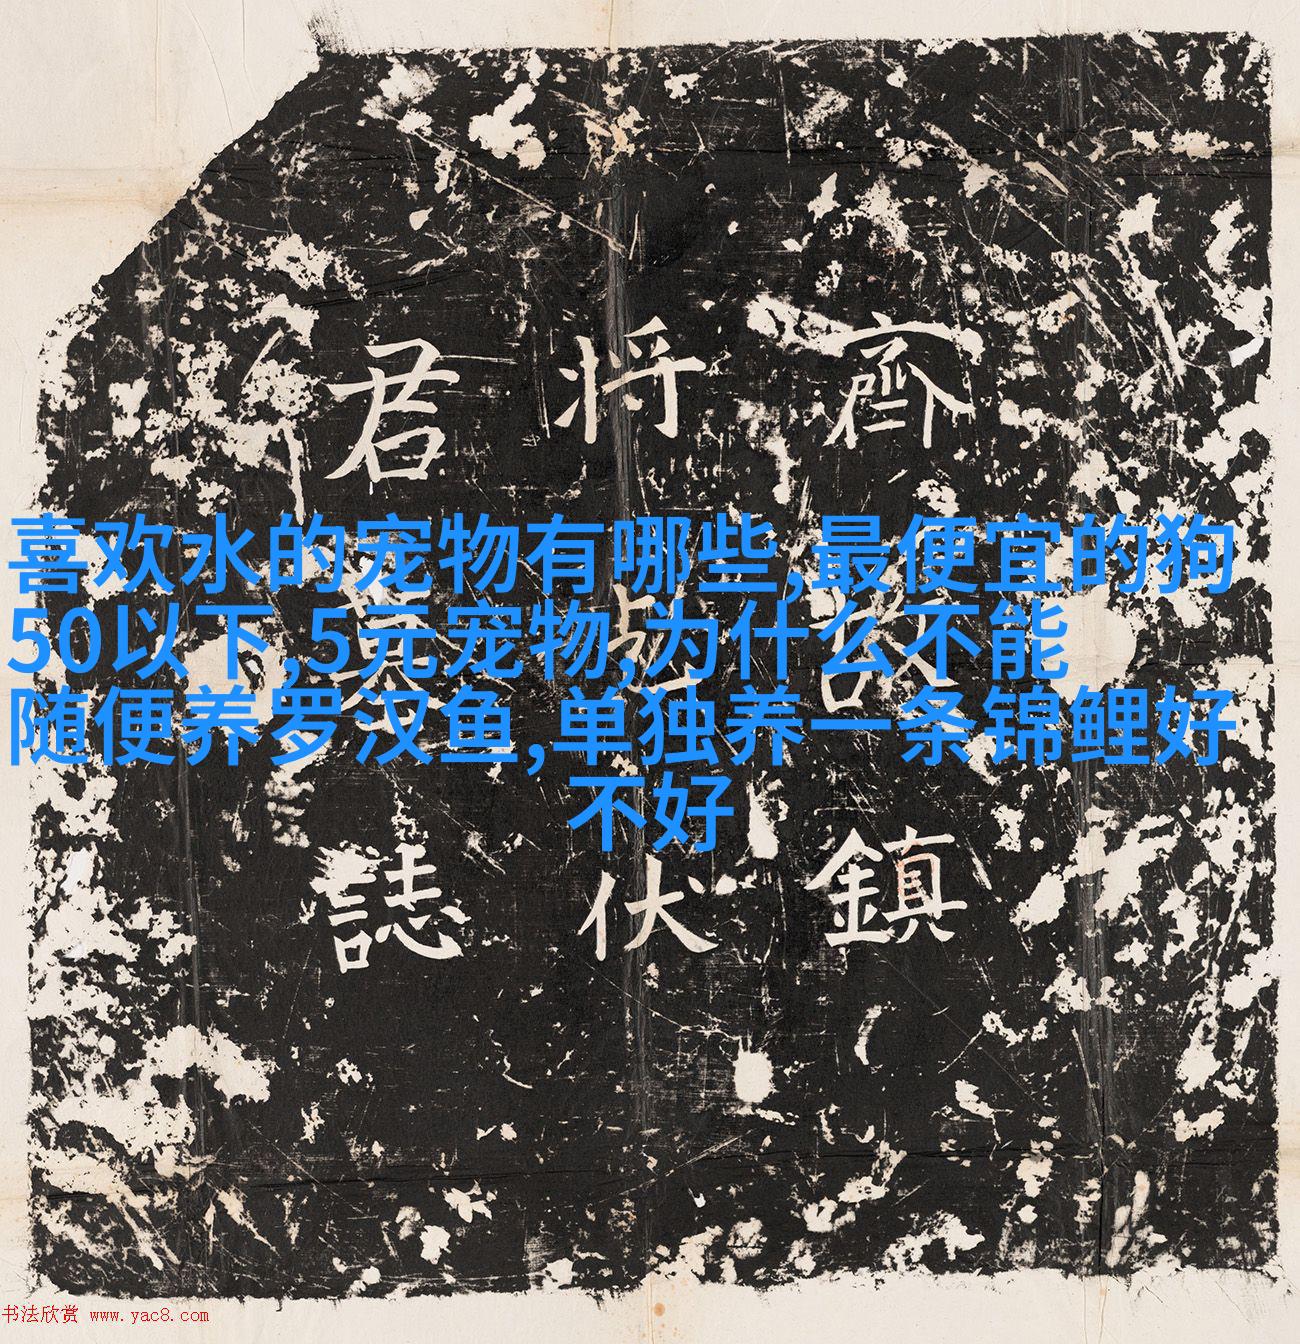 齊 鎮
将 伏
君 誌
喜欢水的宠物有哪些,最便宜的狗
50以下,5元宠物,为什么不能
随便养罗汉鱼,单独养一条锦鲤好
不好
书法欣赏 www.yac8.com